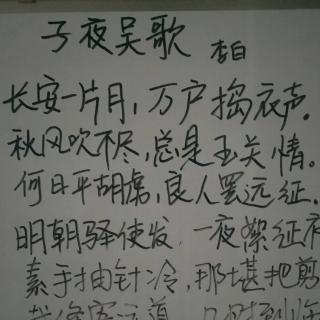 子夜吴歌 李白
长安一片月，万户捣衣声。
秋风吹不尽，总是玉关情。
何日平胡虏，良人罢远征。
明朝驿使发，一夜絮征
素手抽针冷，那堪把剪